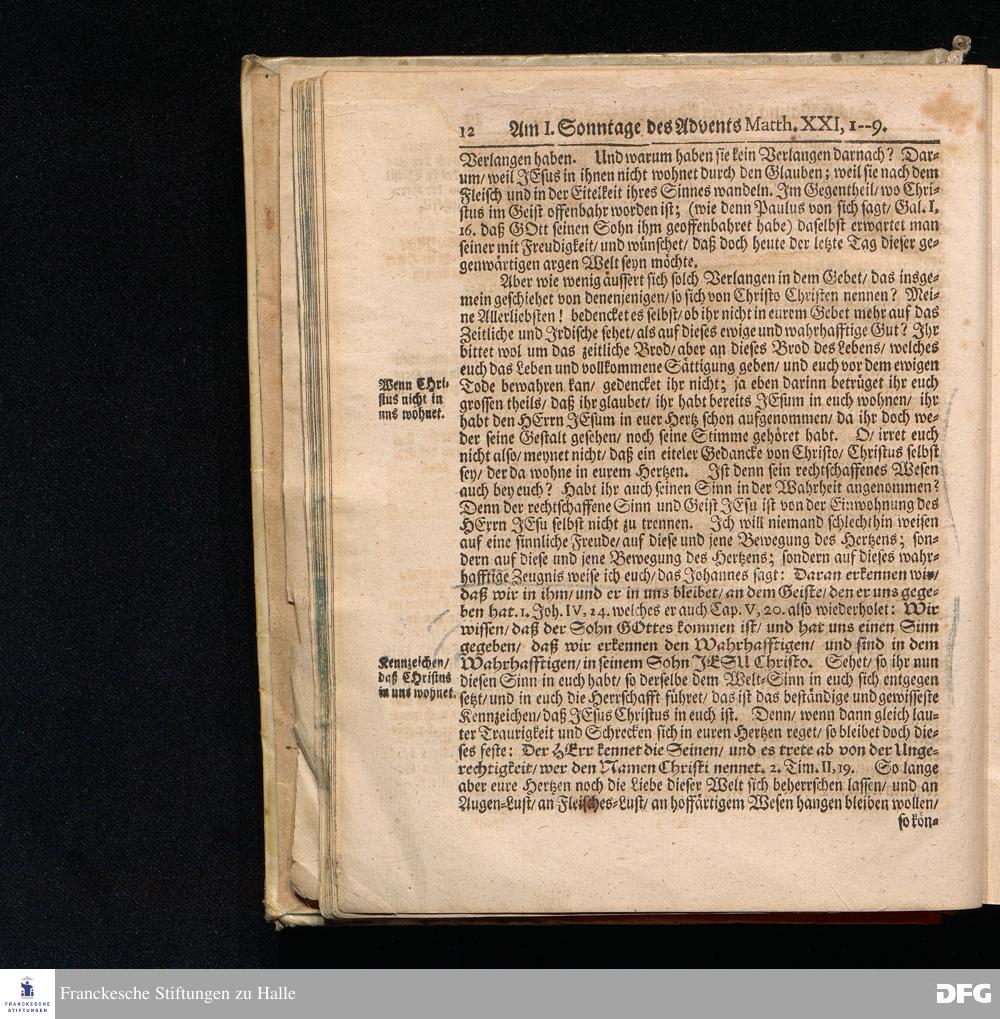 12 Am I. Sonntage des Advents Matth. XXI, 1--9.
Verlangen haben. Und warum haben sie kein Verlangen darnach? Dar-
um/ weil JEsus in ihnen nicht wohnet durch den Glauben; weil sie nach dem
Fleisch und in der Eitelkeit ihres Sinnes wandeln. Im Gegentheil/ wo Chri-
stus im Geist offenbahr worden ist; (wie denn Paulus von sich sagt/ Gal. I,
16. daß GOtt seinen Sohn ihm geoffenbahret habe) daselbst erwartet man
seiner mit Freudigkeit/ und wünschet/ daß doch heute der letzte Tag dieser ge-
genwärtigen argen Welt seyn möchte.
Aber wie wenig äussert sich solch Verlangen in dem Gebet/ das insge-
mein geschiehet von denenjenigen/ so sich von Christo Christen nennen? Mei-
ne Allerliebsten! bedencket es selbst/ ob ihr nicht in eurem Gebet mehr auf das
Zeitliche und Irdische sehet/ als auf dieses ewige und wahrhafftige Gut? Ihr
bittet wol um das zeitliche Brod/ aber an dieses Brod des Lebens/ welches
euch das Leben und vollkommene Sättigung geben/ und euch vor dem ewigen
Tode bewahren kan/ gedencket ihr nicht; ja eben darinn betrüget ihr euch
grossen theils/ daß ihr glaubet/ ihr habt bereits JEsum in euch wohnen/ ihr
habt den HErrn JEsum in euer Hertz schon aufgenommen/ da ihr doch we-
der seine Gestalt gesehen/ noch seine Stimme gehöret habt. O/ irret euch
nicht also/ meynet nicht/ daß ein eiteler Gedancke von Christo/ Christus selbst
sey/ der da wohne in eurem Hertzen. Ist denn sein rechtschaffenes Wesen
auch bey euch? Habt ihr auch seinen Sinn in der Wahrheit angenommen?
Denn der rechtschaffene Sinn und Geist JEsu ist von der Einwohnung des
HErrn JEsu selbst nicht zu trennen. Ich will niemand schlechthin weisen
auf eine sinnliche Freude/ auf diese und jene Bewegung des Hertzens; son-
dern auf diese und jene Bewegung des Hertzens; sondern auf dieses wahr-
hafftige Zeugnis weise ich euch/ das Johannes sagt: Daran erkennen wir/
daß wir in ihm/ und er in uns bleibet/ an dem Geiste/ den er uns gege-
ben hat. 1. Joh. IV, 24. welches er auch Cap. V, 20. also wiederholet: Wir
wissen/ daß der Sohn GOttes kommen ist/ und hat uns einen Sinn
gegeben/ daß wir erkennen den Wahrhafftigen/ und sind in dem
Wahrhafftigen/ in seinem Sohn JESU Christo. Sehet/ so ihr nun
diesen Sinn in euch habt/ so derselbe dem Welt-Sinn in euch sich entgegen
setzt/ und in euch die Herrschafft führet/ das ist das beständige und gewisseste
Kennzeichen/ daß JEsus Christus in euch ist. Denn/ wenn dann gleich lau-
ter Traurigkeit und Schrecken sich in euren Hertzen reget/ so bleibet doch die-
ses feste: Der HErr kennet die Seinen/ und es trete ab von der Unge-
rechtigkeit/ wer den Namen Christi nennet. 2. Tim. II, 19. So lange
aber eure Hertzen noch die Liebe dieser Welt sich beherrschen lassen/ und an
Augen-Lust/ an Fleisches-Lust/ an hoffärtigem Wesen hangen bleiben wollen/
so kön-
Wenn CHri-
stus nicht in
uns wohnet.
Kennzeichen/
daß CHristus
in uns wohnet.
FRANCKESCHE
STIFTUNGEN
Franckesche Stiftungen zu Halle
DFG